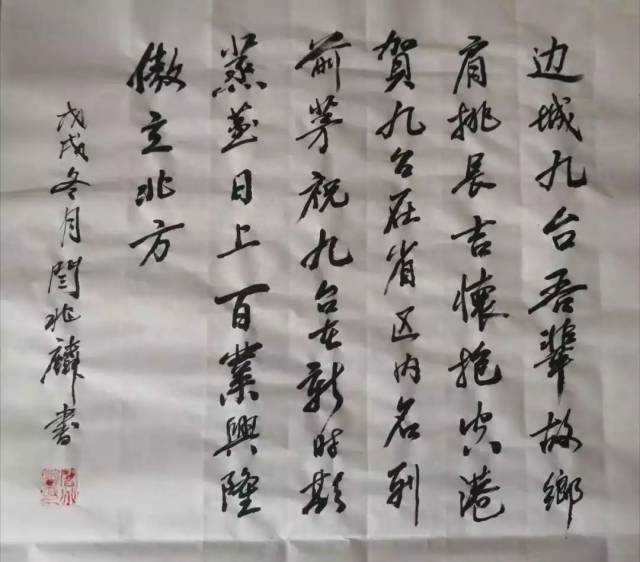 边城九台吾辈故鄉
肩挑長吉懷抱空港
賀九台在省区内名列
前茅祝九台在新时期
蒸蒸日上百業興隆
傲立北方
戊戌冬月閆兆麟书